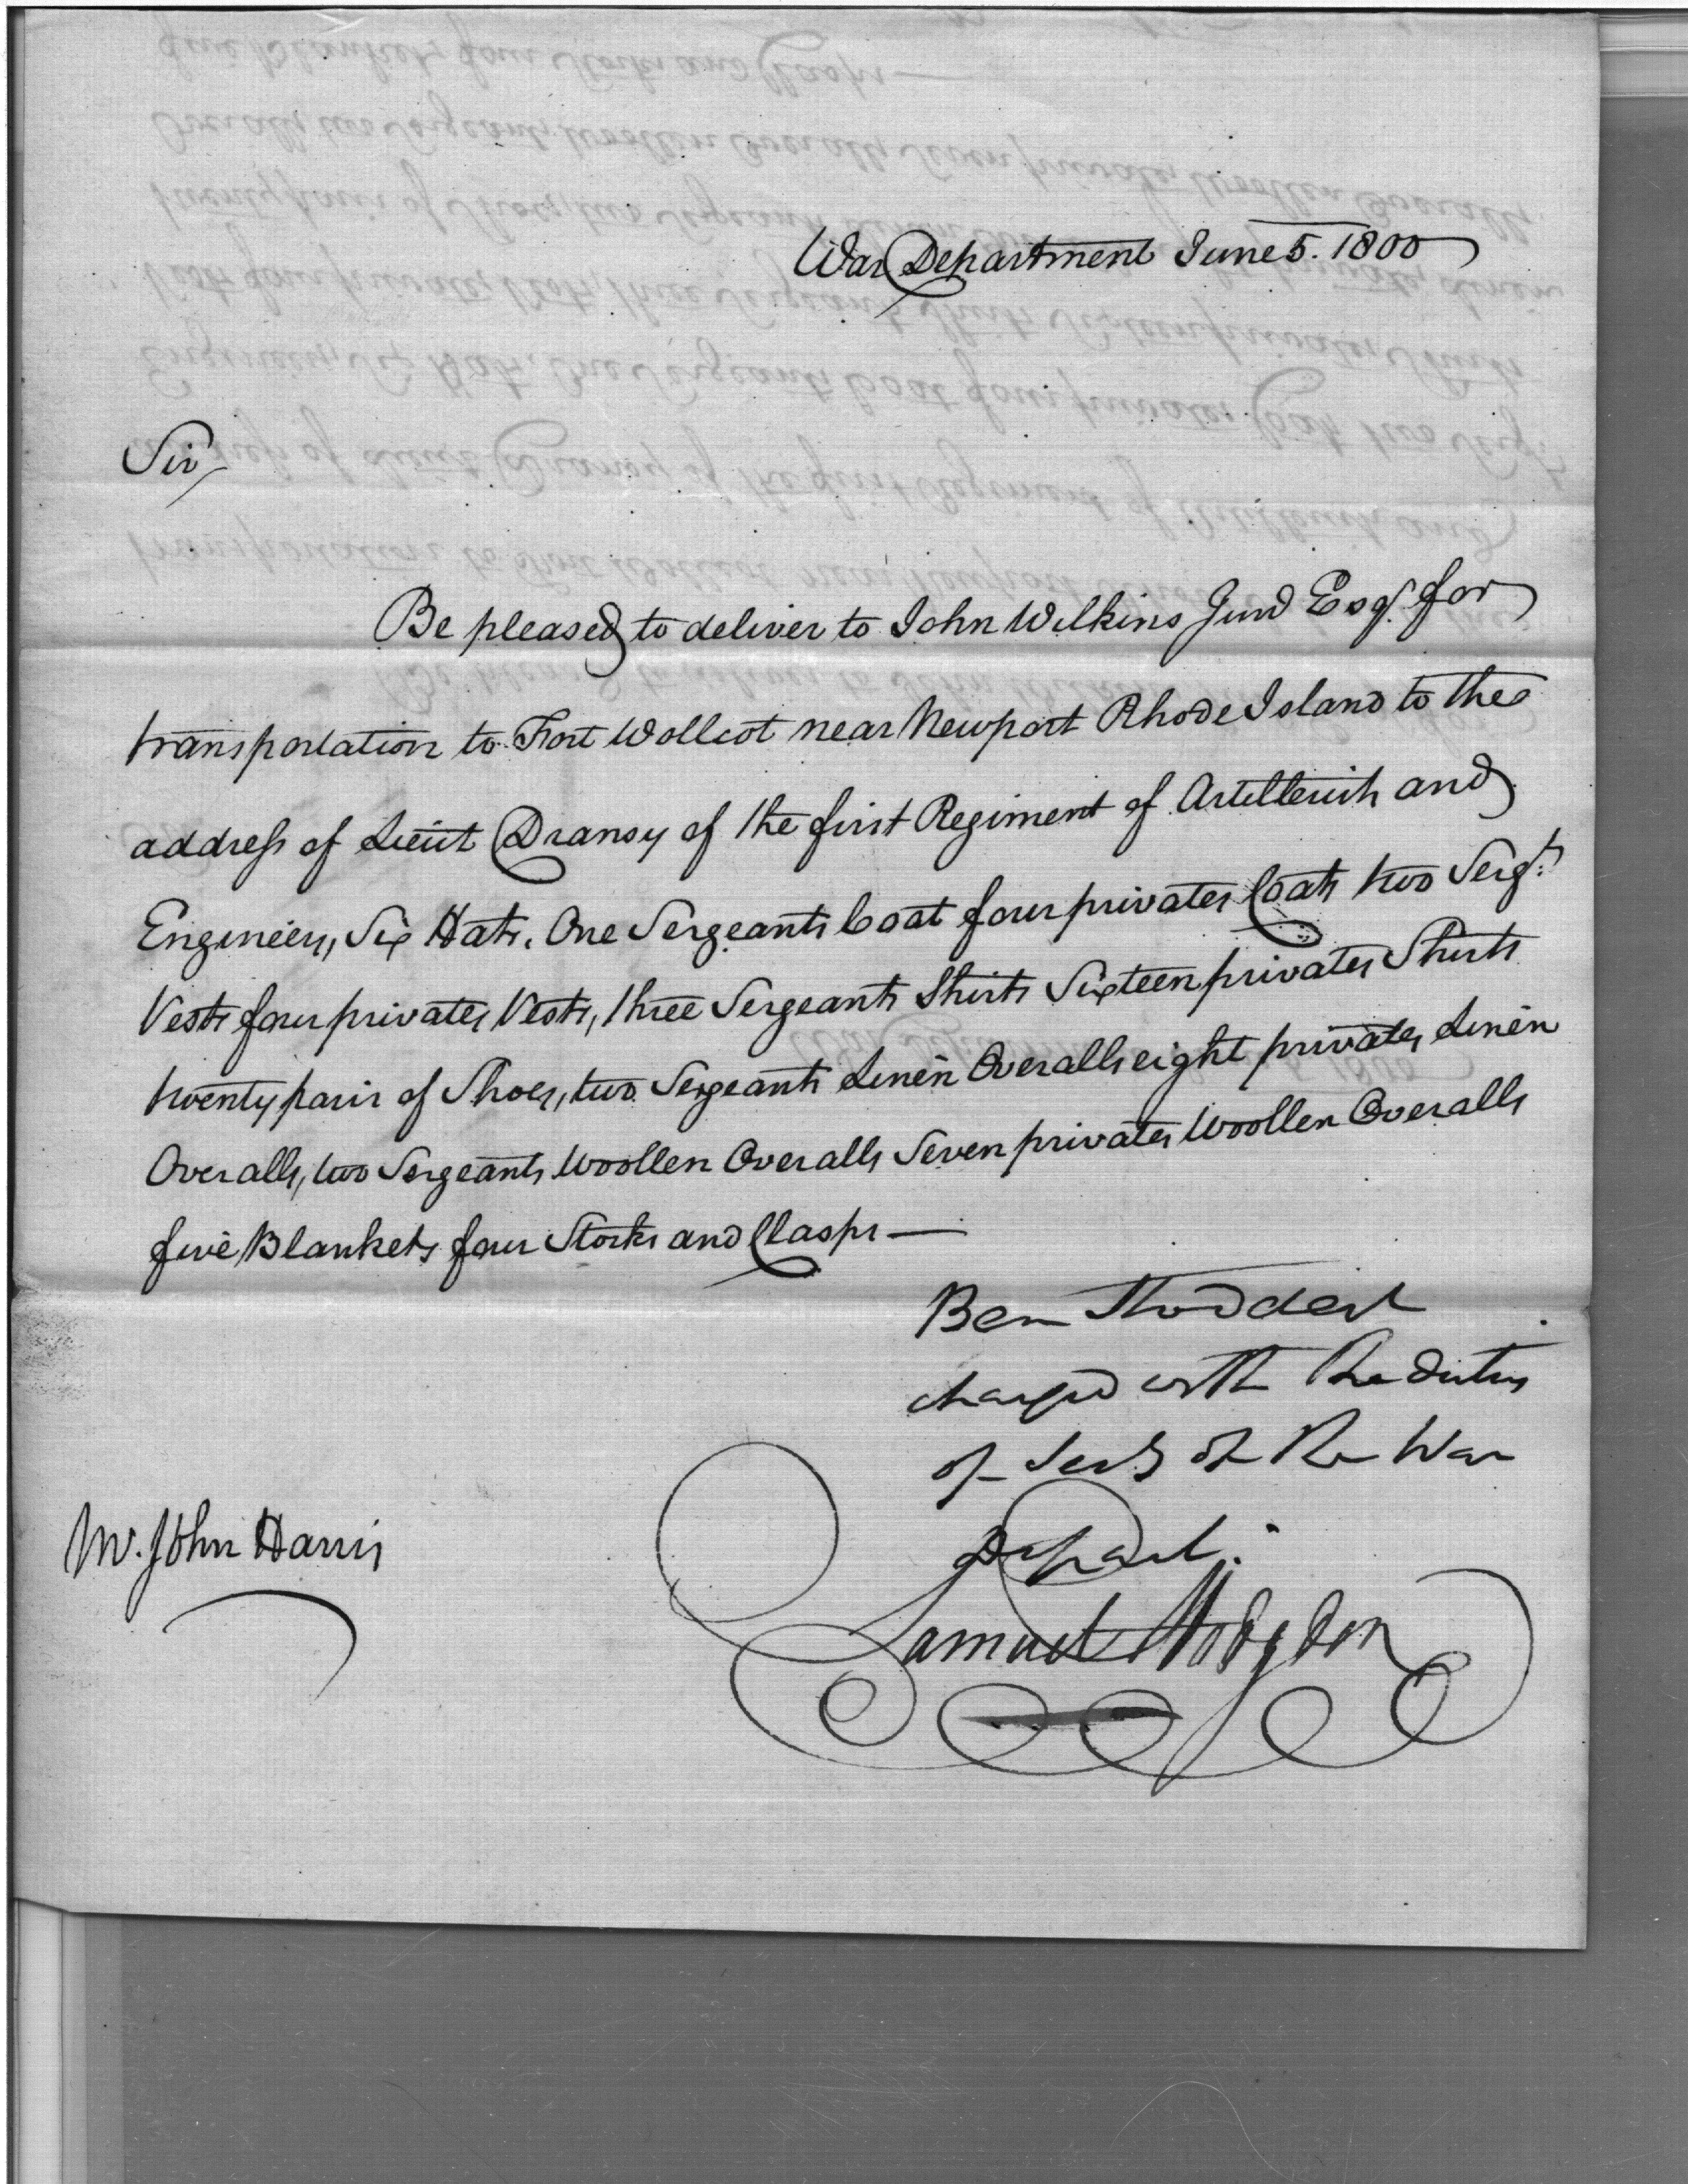 War Department June 5. 1800
Sir
Be pleased to deliver to John Wilkins Junr Esqr. for
transportation to Fort Wollcot near Newport Rhode Island to the
address of Lieut Dransy of the first Regiment of Artillerists and
Engineers, Six Hats, One Sergeants Coat four privates Coats two Sergts.
Vests four privates Vests, three Sergeants Shirts Sixteen privates Shirts
twenty pairs of Shoes, two Sergeants Linen Overalls eight privates Linen
Overalls, two Sergeants Woollen Overalls Seven privates Woollen Overalls
five Blankets four Stocks and Clasps —
Ben Stoddert
charged with the duties
of Secy of the War
Depart.
Mr. John Harris
Samuel Hodgdon